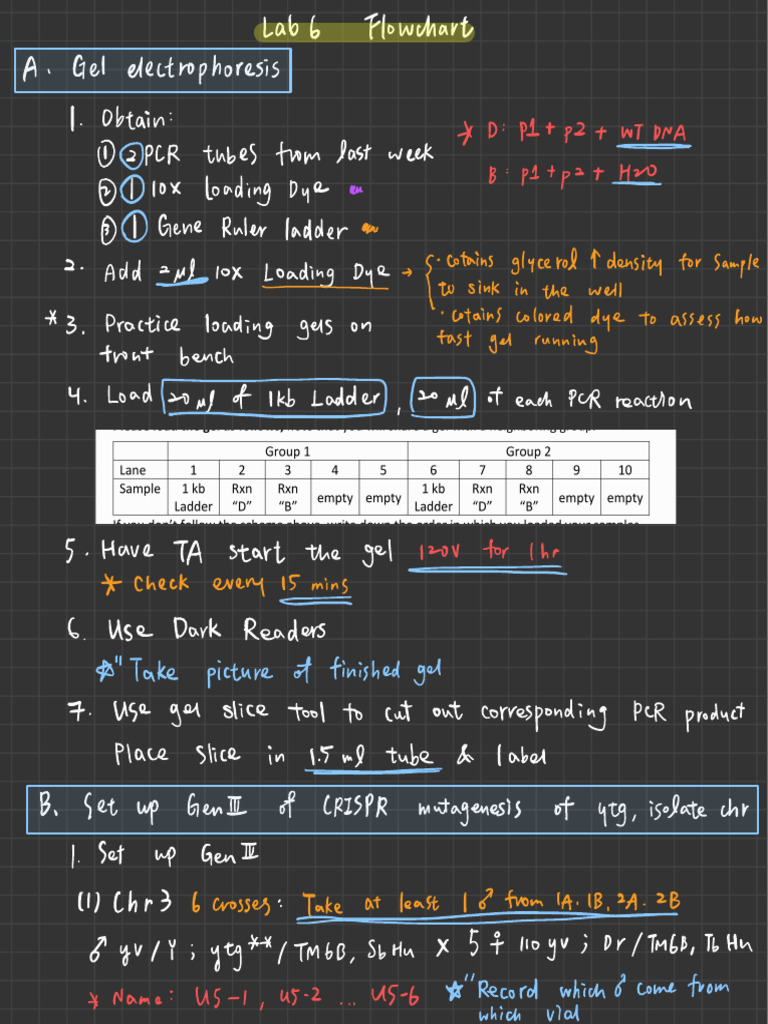 Lab 6 Flowchart
A. Gel electrophoresis
1. Obtain:
① ② PCR tubes from last week
② ① 10x Loading Dye
③ ① Gene Ruler ladder
* D: p1 + p2 + WT DNA
B: p1 + p2 + H2O
2. Add 2 μl 10x Loading Dye →
· cotains glycerol ↑ density for sample
to sink in the well
· cotains colored dye to assess how
fast gel running
*3. Practice loading gels on
front bench
4. Load 20 μl of 1kb Ladder, 20 μl of each PCR reaction
Group 1 Group 2
Lane 1 2 3 4 5 6 7 8 9 10
Sample 1 kb Ladder Rxn "D" Rxn "B" empty empty 1 kb Ladder Rxn "D" Rxn "B" empty empty
5. Have TA start the gel 120V for 1hr
* Check every 15 mins
6. Use Dark Readers
☆" Take picture of finished gel
7. Use gel slice tool to cut out corresponding PCR product
Place slice in 1.5 ml tube & label
B. Set up Gen III of CRISPR mutagenesis of ytg, isolate chr
1. Set up Gen III
(1) Chr 3 6 crosses: Take at least 1 ♂ from 1A. 1B, 2A. 2B
♂ yv / Y ; ytg** / TM6B, Sb Hu x 5 ♀ 110 yv ; Dr / TM6B, Tb Hu
* Name: U5-1, U5-2 ... U5-6
☆" Record which ♂ come from
which vial